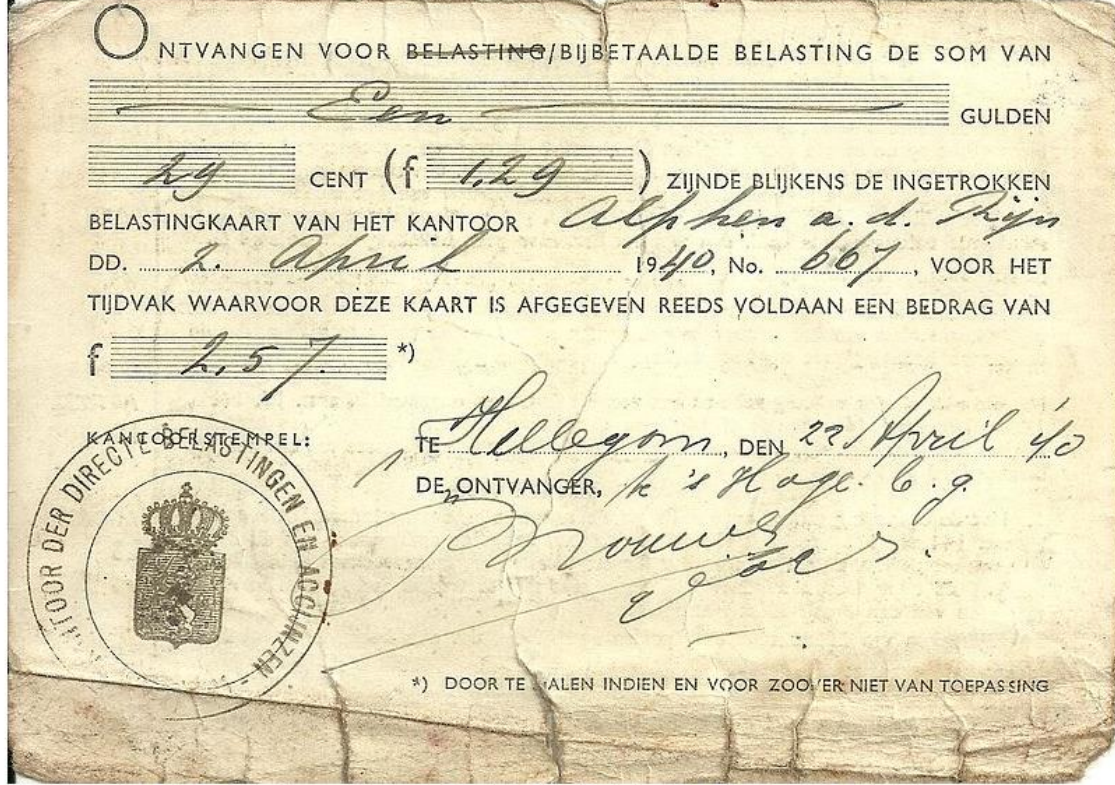 ONTVANGEN VOOR BELASTING/BIJBETAALDE BELASTING DE SOM VAN
Een GULDEN
29 CENT (f 1,29) ZIJNDE BLIJKENS DE INGETROKKEN
BELASTINGKAART VAN HET KANTOOR Alphen a. d. Rijn
DD. 2. April 1940, No. 667, VOOR HET
TIJDVAK WAARVOOR DEZE KAART IS AFGEGEVEN REEDS VOLDAAN EEN BEDRAG VAN
f 2,57. *)
KANTOORSTEMPEL:
TE Hillegom, DEN 22 April '40
DE ONTVANGER,
KANTOOR DER DIRECTE BELASTINGEN EN ACCIJNZEN
*) DOOR TE HALEN INDIEN EN VOOR ZOOVER NIET VAN TOEPASSING